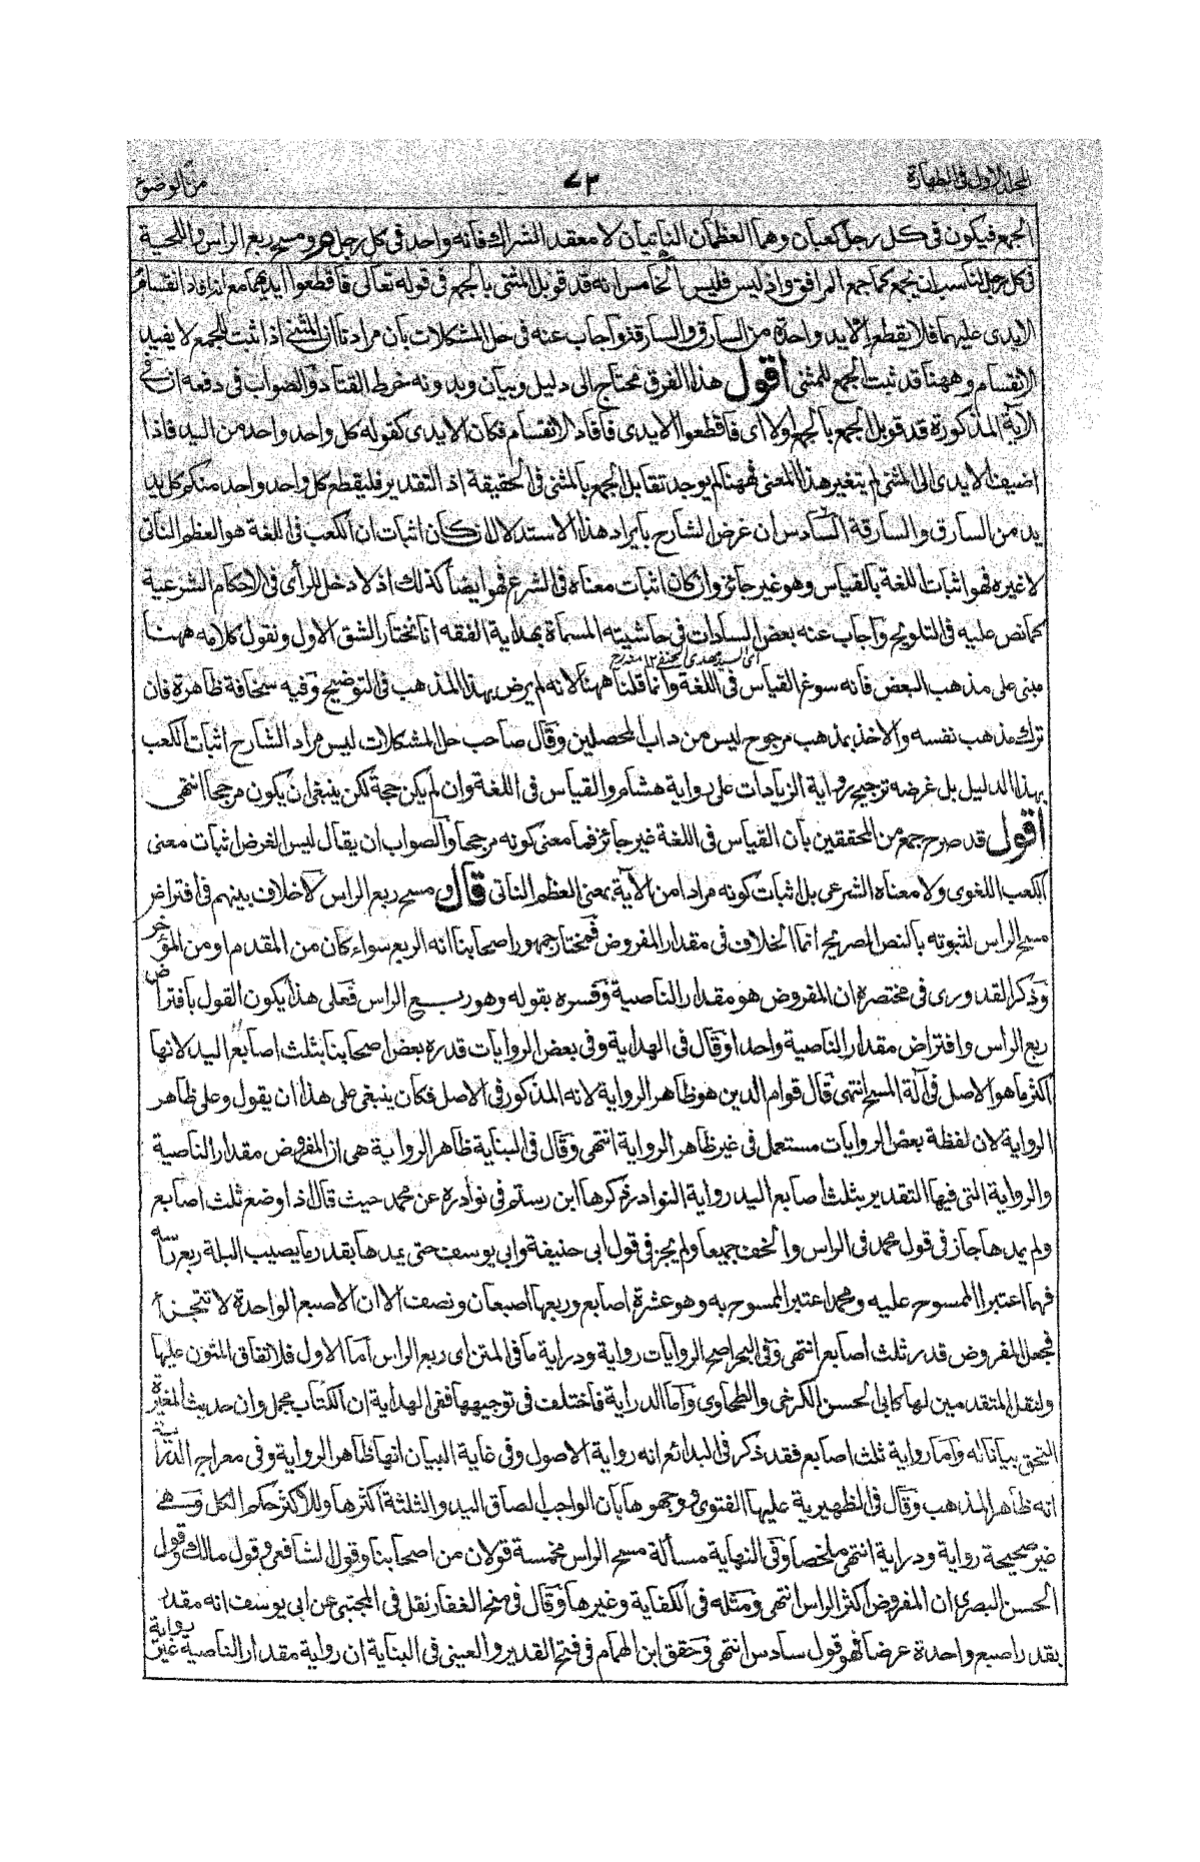 المجلد الاول فى الطهارة ٧٣ من الوضوء
الجمع فيكون فى كل رجل كعبان وهما العظمان الناتيان لا معقد الشراك فانه واحد فى كل رجل هو ومسح ربع الراس واللحية
فى كل رجل لناسب ان يجمع كما جمع المرافق واذ ليس فليس الخامس انه قد قوبل المثنى بالجمع فى قوله تعالى فاقطعوا ايديهما مع انه افاد انقسام
الايدى عليهما فلا يقطع الا يد واحدة من السارق والسارقة واجاب عنه فى حل المشكلات بان مرادنا ان المثنى اذا ثبت للجمع لا يفيد
الانقسام وههنا قد ثبت الجمع للمثنى اقول هذا الفرق محتاج الى دليل وبيان وبدونه خرط القتاد والصواب فى دفعه ان فى
الآية المذكورة قد قوبل الجمع بالجمع اولا اى فاقطعوا الايدى فافاد الانقسام فكان الايدى كقوله كل واحد واحد من اليد فاذا
اضيف الايدى الى المثنى لم يتغير هذا المعنى فههنا لم يوجد تقابل الجمع بالمثنى فى الحقيقة اذ التقدير فليقطع كل واحد واحد منكم كل يد
يد من السارق والسارقة السادس ان غرض الشارح بايراد هذا الاستدلال ان كان اثبات ان الكعب فى اللغة هو العظم الناتى
لا غيره فهو اثبات اللغة بالقياس وهو غير جائز وان كان اثبات معناه فى الشرع فهو ايضا كذلك اذ لا دخل للرأى فى الاحكام الشرعية
كما نص عليه فى التلويح واجاب عنه بعض السادات فى حاشيته المسماة بهداية الفقه انا نختار الشق الاول ونقول كلامه ههنا
اى السيد مهدى الحنفى ١٢ منه رح
مبنى على مذهب البعض فانه سوغ القياس فى اللغة وانما قلنا ههنا لانه لم يرض بهذا المذهب فى التوضيح وفيه سخافة ظاهرة فان
ترك مذهب نفسه والاخذ بمذهب مرجوح ليس من داب المحصلين وقال صاحب حل المشكلات ليس مراد الشارح اثبات الكعب
بهذا الدليل بل غرضه ترجيح رواية الزيادات على رواية هشام والقياس فى اللغة وان لم يكن حجة لكن ينبغى ان يكون مرجحا انتهى
اقول قد صرح جمع من المحققين بان القياس فى اللغة غير جائز فما معنى كونه مرجحا والصواب ان يقال ليس الغرض اثبات معنى
الكعب اللغوى ولا معناه الشرعى بل اثبات كونه مرادا من الآية بمعنى العظم الناتى قال ومسح ربع الراس لا خلاف بينهم فى افتراض
مسح الراس لثبوته بالنص الصريح انما الخلاف فى مقدار المفروض فمختار جمهور اصحابنا انه الربع سواء كان من المقدم او من المؤخر
وذكر القدورى فى مختصره ان المفروض هو مقدار الناصية وفسره بقوله وهو ربع الراس فعلى هذا يكون القول بافتراض
ربع الراس وافتراض مقدار الناصية واحدا وقال فى الهداية وفى بعض الروايات قدره بعض اصحابنا بثلث اصابع اليد لانها
اكثر ما هو الاصل فى آلة المسح انتهى قال قوام الدين هو ظاهر الرواية لانه المذكور فى الاصل فكان ينبغى على هذا ان يقول وعلى ظاهر
الرواية لان لفظة بعض الروايات مستعمل فى غير ظاهر الرواية انتهى وقال فى البناية ظاهر الرواية هى ان المفروض مقدار الناصية
والرواية التى فيها التقدير بثلث اصابع اليد رواية النوادر ذكرها ابن رستم فى نوادره عن محمد حيث قال اذا وضع ثلث اصابع
ولم يمدها جاز فى قول محمد فى الراس والخف جميعا ولم يجز فى قول ابى حنيفة وابى يوسف حتى يمدها بقدر ما يصيب البلة ربع راسه
فهما اعتبرا الممسوح عليه ومحمد اعتبر الممسوح به وهو عشرة اصابع وربعها اصبعان ونصف الا ان الاصبع الواحدة لا تتجزأ
فجعل المفروض قدر ثلث اصابع انتهى وفى البحر اصح الروايات رواية ودراية ما فى المتن اى ربع الراس اما الاول فلاتفاق المتون عليها
ولنقل المتقدمين لها كابى الحسن الكرخى والطحاوى واما الدراية فاختلف فى توجيهها ففى الهداية ان الكتاب مجمل وان حديث المغيرة
التحق بيانا له واما رواية ثلث اصابع فقد ذكر فى البدائع انه رواية الاصول وفى غاية البيان انها ظاهر الرواية وفى معراج الدراية
انه ظاهر المذهب وقال فى الظهيرية عليها الفتوى ووجهوها بان الواجب الصاق اليد والثلثة اكثرها وللاكثر حكم الكل وهى
غير صحيحة رواية ودراية انتهى ملخصا وفى النهاية مسألة مسح الراس مخمسة قولان من اصحابنا وقول الشافعى وقول مالك وقول
الحسن البصرى ان المفروض اكثر الراس انتهى ومثله فى الكفاية وغيرها وقال فى منح الغفار نقل فى المجتبى عن ابى يوسف انه مقدر
بقدر اصبع واحدة عرضا فهو قول سادس انتهى وحقق ابن الهمام فى فتح القدير والعينى فى البناية ان رواية مقدار الناصية غير رواية